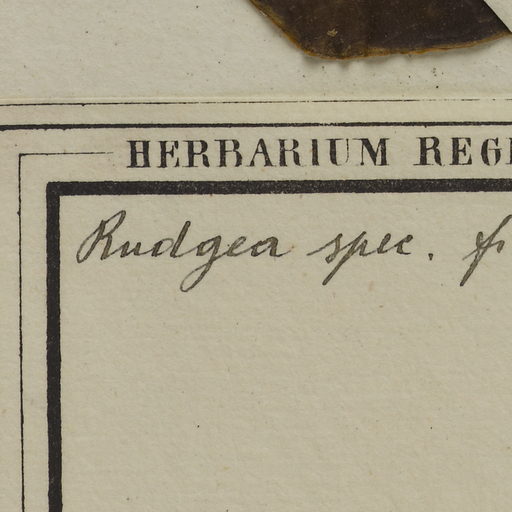 HERBARIUM REGI
Rudgea spec.